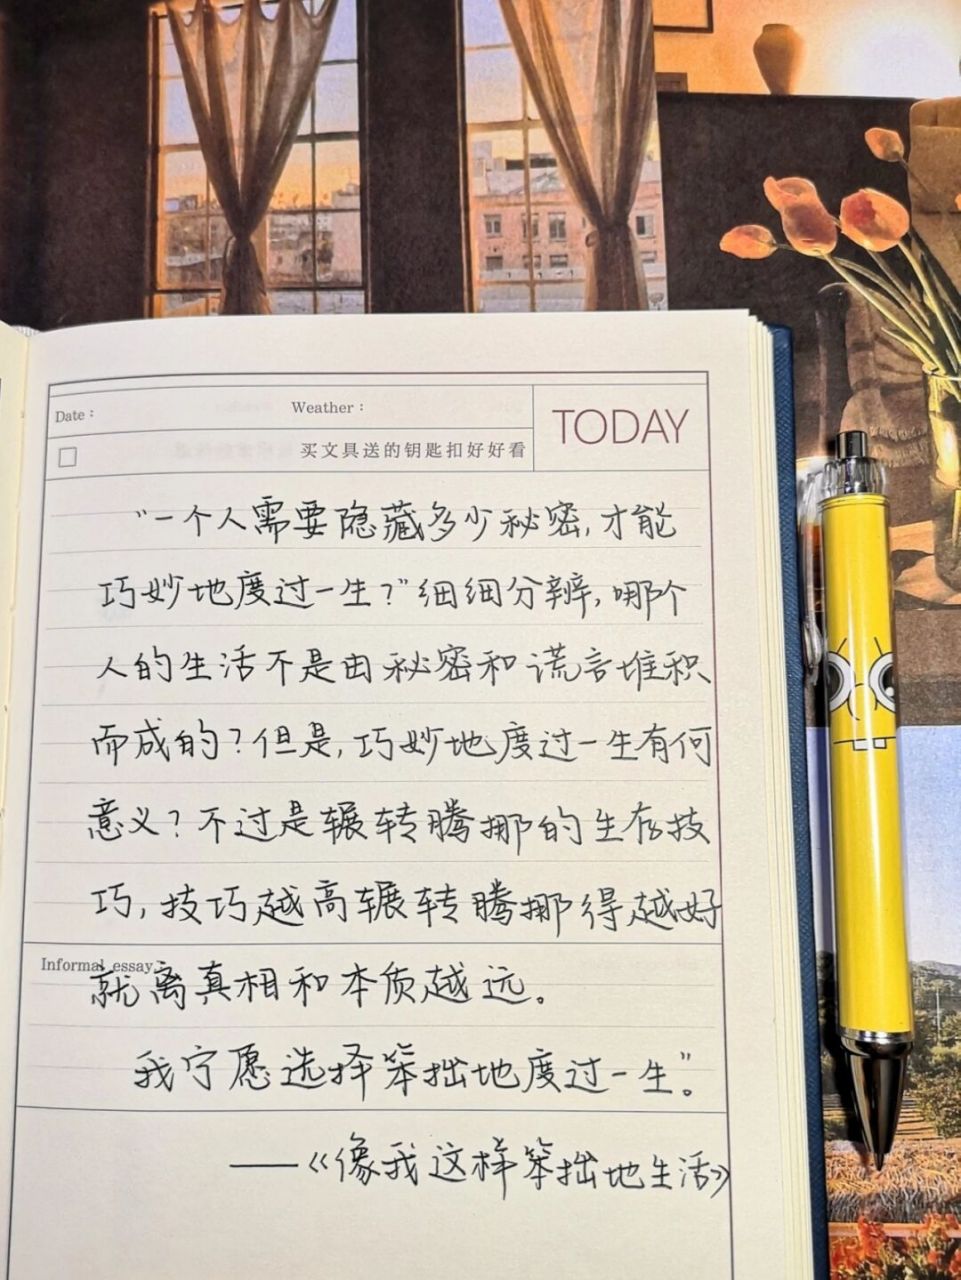 Date：
Weather：
TODAY
买文具送的钥匙扣好好看
“一个人需要隐藏多少秘密，才能
巧妙地度过一生？”细细分辨，哪个
人的生活不是由秘密和谎言堆积
而成的？但是，巧妙地度过一生有何
意义？不过是辗转腾挪的生存技
巧，技巧越高辗转腾挪得越好
Informal essay
就离真相和本质越远。
我宁愿选择笨拙地度过一生”。
——《像我这样笨拙地生活》